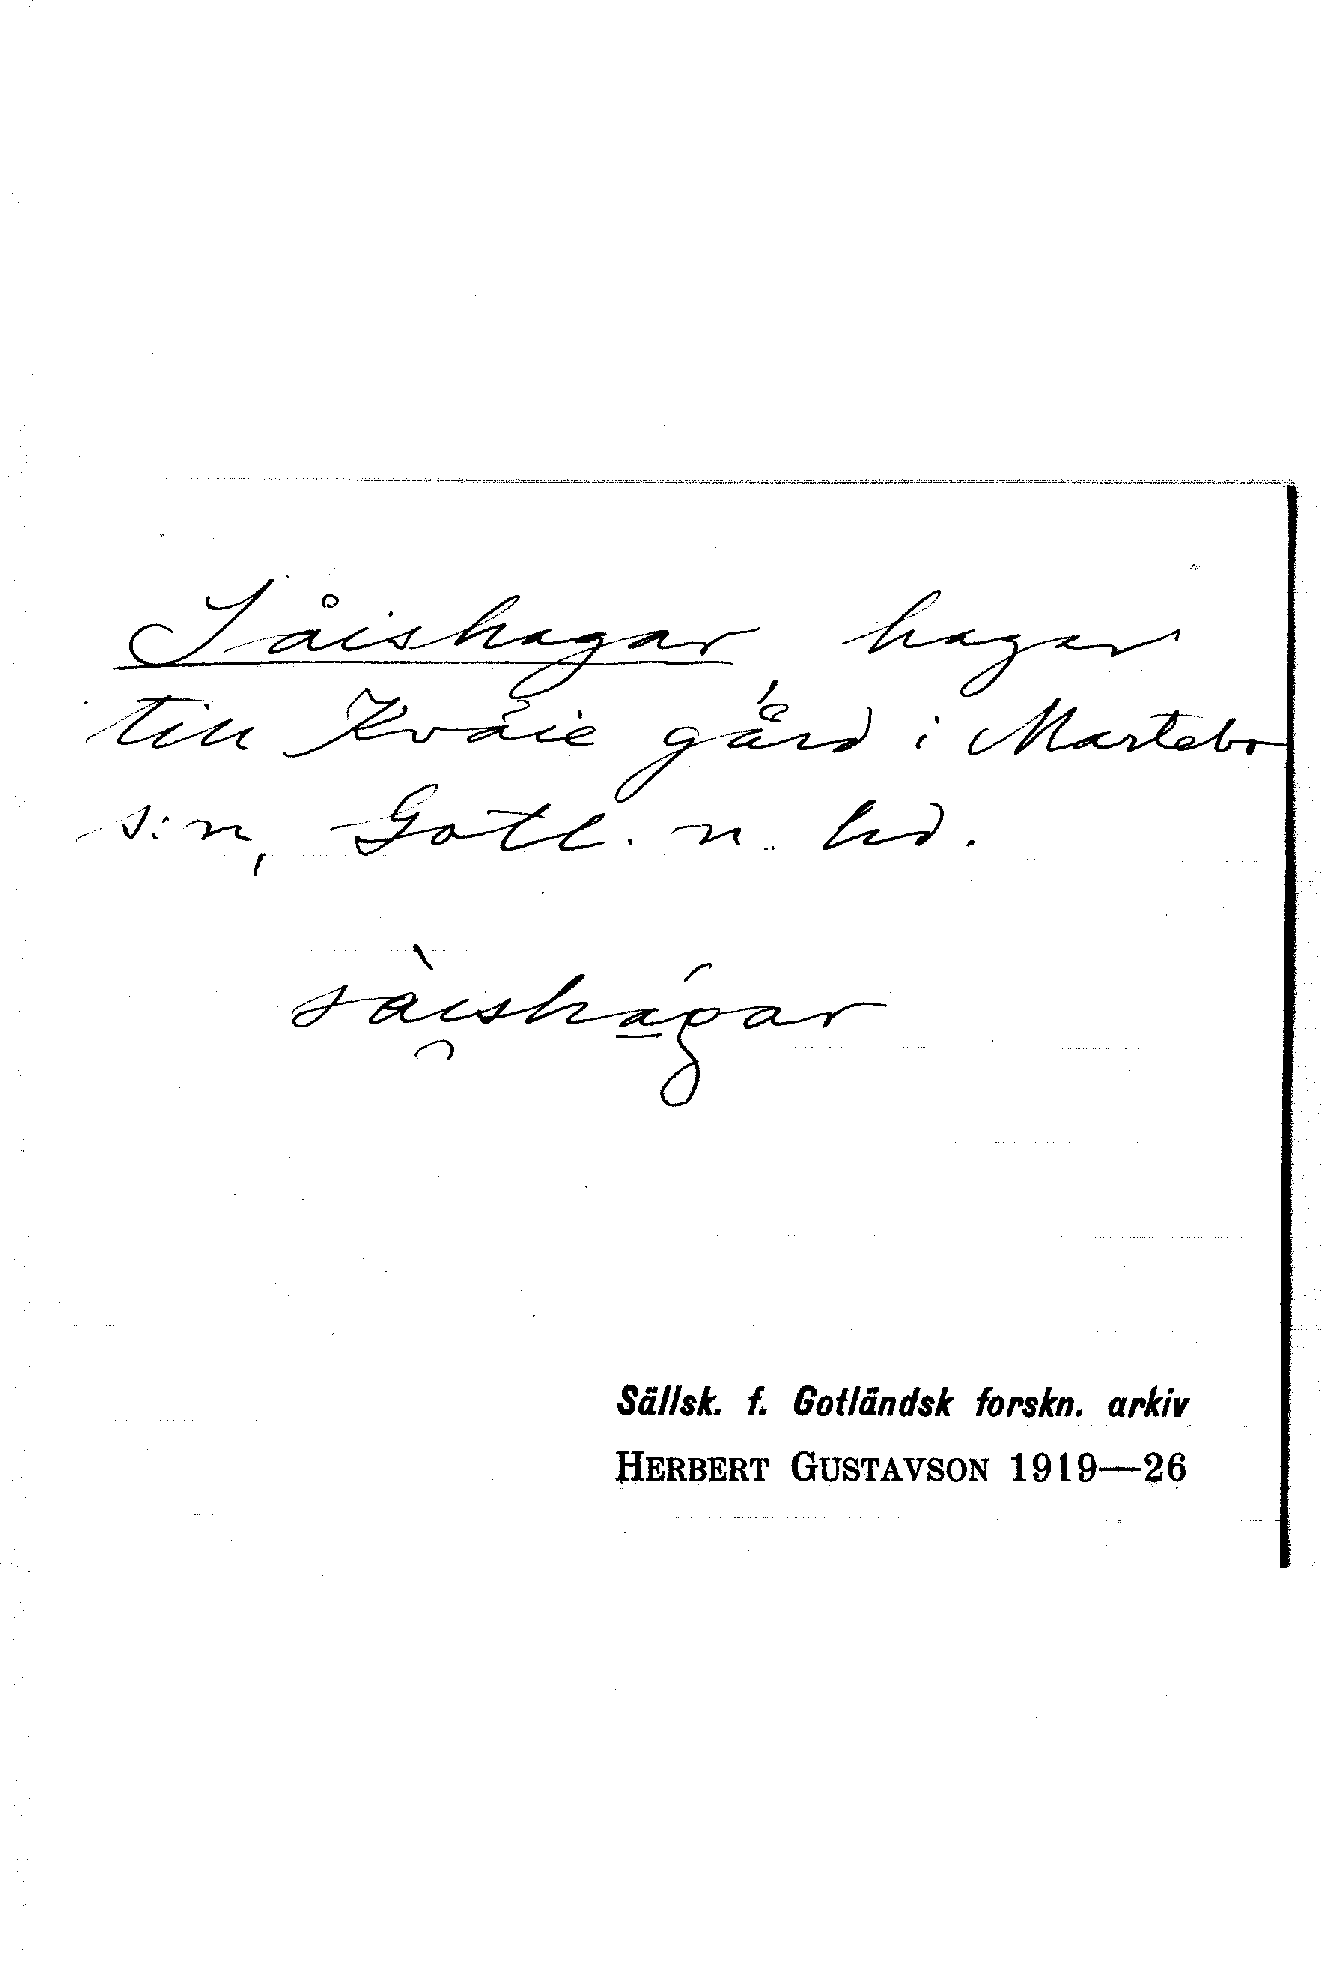 Såishagar, hagar
till Kvåie gård i Martebo
s:n, Gotl. n. hd.
sàishágar
Sällsk. f. Gotländsk forskn. arkiv
HERBERT GUSTAVSON 1919—26